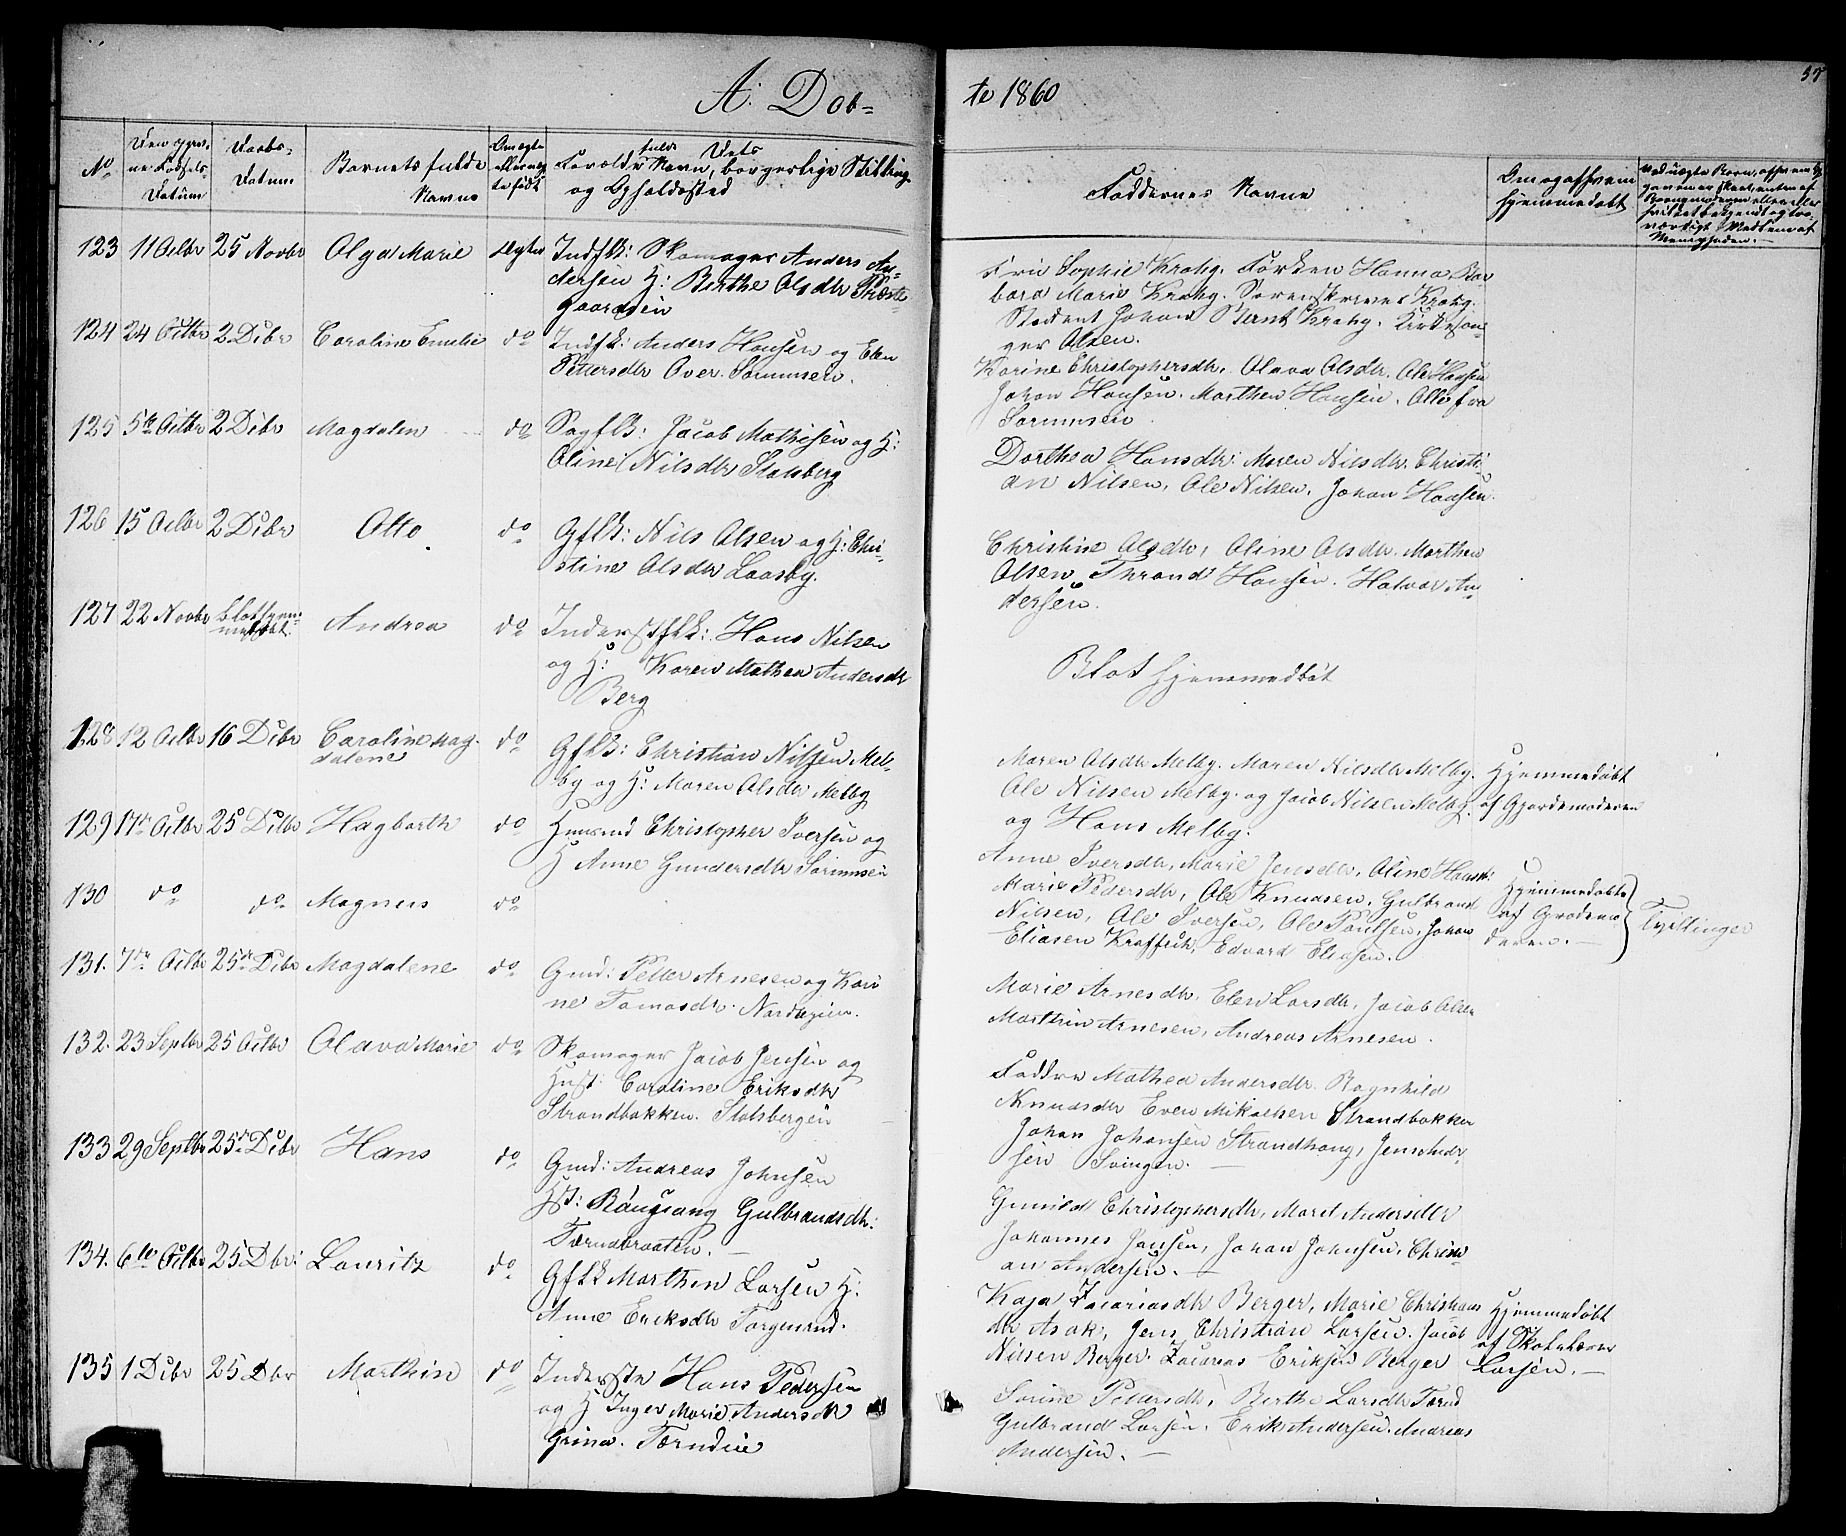 A. Døb=
te 1860
37
No
Den opgivne Fødsels Datum
Daabs-
Datum
Barnets fulde
Navne
Om ægte
eller uæg
te født
Forældres fulde Navn, borgerlige Stilling
og Opholdssted
Faddernes Navne
Om og af hvem
hjemmedøbt
123 11 Octbr 25 Novbr Olga Marie Ægte Indflk: Skomager Anders An-
dersen H: Berthe Olsdtr Præste
gaardseie
Sophie Krohg. Frøken Hanna Bar-
bara Marie Krohg. Sorenskriver Krohg.
Student Johan Bernt Krohg. Kirkesan-
ger Olsen.
124 24 Octbr 2 Dcbr Caroline Emilie do Indflk: Anders Hansen og Elen
Pettersdtr Over Sørumseie.
Karine Christophersdtr. Olava Olsdtr. Ole Hansen
Johan Hansen. Marthen Hansen. Alle fra
Sørumseie
125 5te Octbr 2 Dcbr Magdalen do Sagflk: Jacob Mathisen og H:
Oline Nilsdtr Stalsberg
Dorthea Hansdtr: Maren Nilsdtr. Christi-
an Nilsen. Ole Nilsen. Johan Hansen.
126 15 Octbr 2 Dcbr Otto. do Gflk: Nils Olsen og H: Chri-
stine Olsdtr Laasby.
Christine Olsdtr, Oline Olsdtr. Marthen
Olsen, Thrond Hansen. Halvor An-
dersen.
127 22 Novbr Blot hjem-
medøbt. Andrea do Inderstflk: Hans Nilsen
og H: Karen Mathea Andersdtr
Berg
Blot hjemmedøbt
128 12 Octbr 16 Dcbr Caroline Mag-
dalene do Gflk: Christian Nilsen Mel-
by og H: Maren Olsdtr Melby
Maren Olsdtr Melby. Maren Nilsdtr Melby.
Ole Nilsen Melby. og Jacob Nilsen Melby.
og Hans Melby.
Hjemmedøbt
af Gjordemoderen
129 17de Octbr 25 Dcbr Hagbarth do Husmd Christopher Iversen og
H Anne Gundersdtr Sørumseie
Anne Iversdtr, Marie Jensdtr, Oline Hansdtr.
Marie Pedersdtr, Ole Knudsen, Gulbrand
Nilsen, Ole Iversen, Ole Paulsen, Johan
Eliasen Kraffeik, Edvard Eliasen.
Hjemmedøbte
af Gjordemo
deren. —
Tvillinger
130 do do Magnus do
131. 7de Octbr 25de Dcbr Magdalene do Gmd: Petter Arnesen og Kari
ne Tomasdtr. Nordbyeie.
Marie Arnesdtr, Elen Larsdtr, Jacob Olsen
Marthin Arnesen, Andreas Arnesen.
132. 23 Septbr 25 Octbr Olava Marie do Skomager Jacob Jensen og
Hust: Caroline Eriksdtr
Strandbakken. Stalsbergeie
Faddre Mathea Andersdtr. Ragnhild
Knudsdtr Even Mikaelsen Strandbakken
Johan Johansen Strandhaug, Jens Andr-
sen Svingen. —
133 29 Septbr 25de Dcbr Hans do Gmd: Andreas Johnsen
Hst: Rønnaug Gulbrandsdtr:
Tærnebraaten. —
Gunild Christophersdtr, Maret Andersdtr
Johannes Jansen, Johan Johnsen, Christi-
an Andersen. —
134. 6te Octbr 25 Dbr: Lauritz do Gflk Marthen Larsen H:
Anne Eriksdtr Torgenrud.
Kaja Zacariasdtr Berger, Marie Christians
dtr Asak, Jens Christian Larsen. Jacob
Nilsen Berger. Zacarias Eriksen Berger
Hjemmedøbt
af Skolelærer
Larsen. —
135 1 Dcbr 25 Dbr Marthin do Inderste Hans Pedersen
og H Inger Marie Andersdtr
Grina. Tærudeie
Sorine Petersdtr, Berthe Larsdtr Tærud
Gulbrand Larsen. Erik Andersen. Andreas
Andersen. —